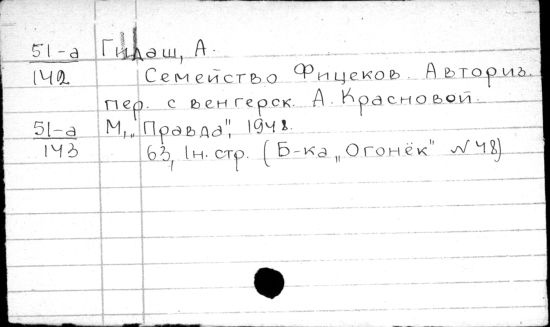 51-а Гидаш, А.
142 Семейство Фицеков. Авториз.
пер. с венгерск. А. Красновой.
51-а М., "Правда", 1948.
143 63, 1н. стр. (Б-ка "Огонёк" №48)